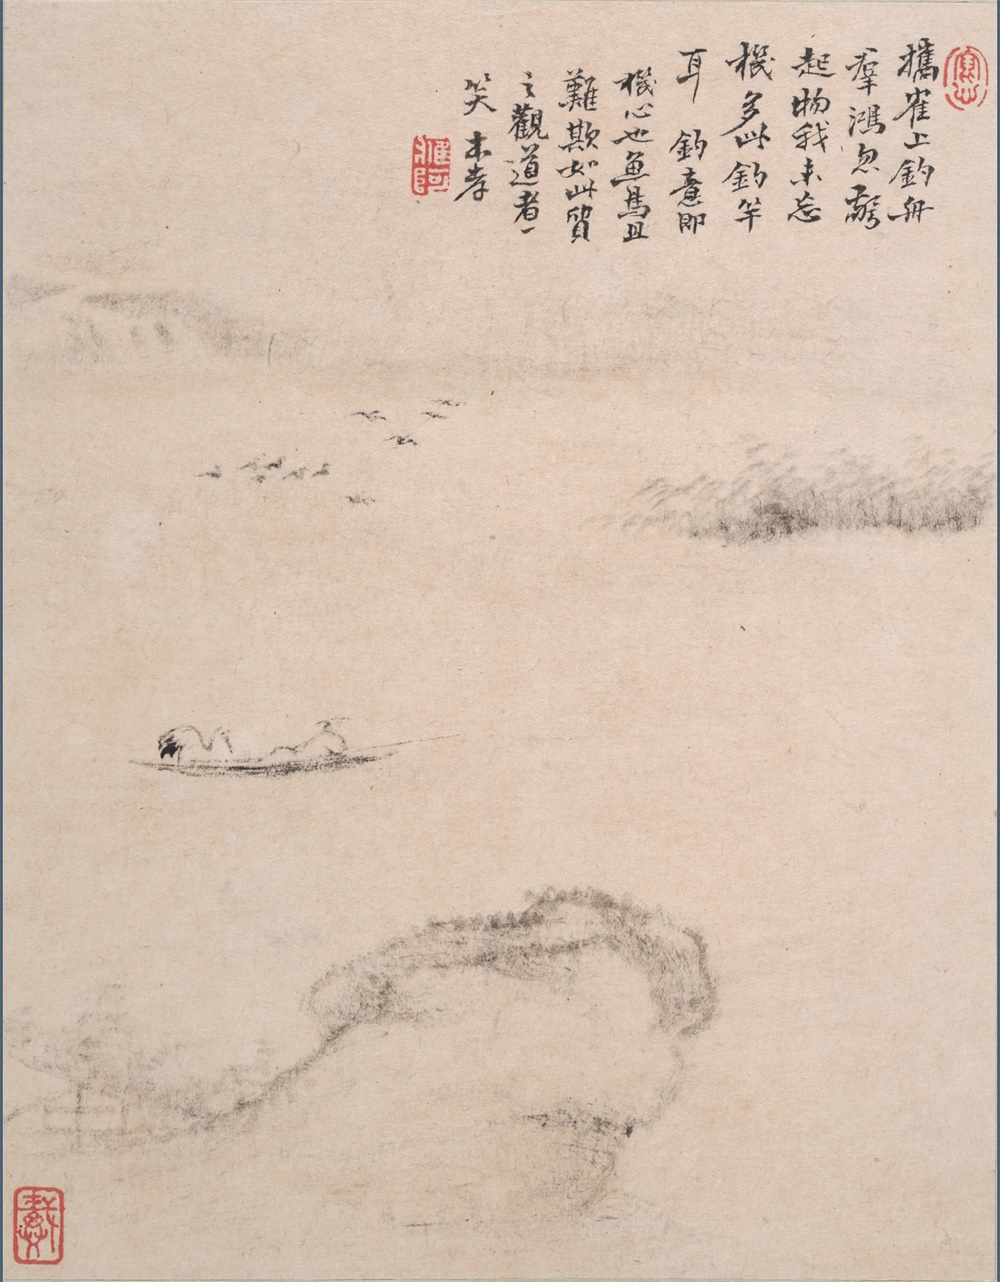 攜崔上釣舟
羣鴻忽驚
起物我未忘
機多此釣竿
耳 釣意即
機心也魚馬且
難欺如此質
之觀道者一
笑 木孝